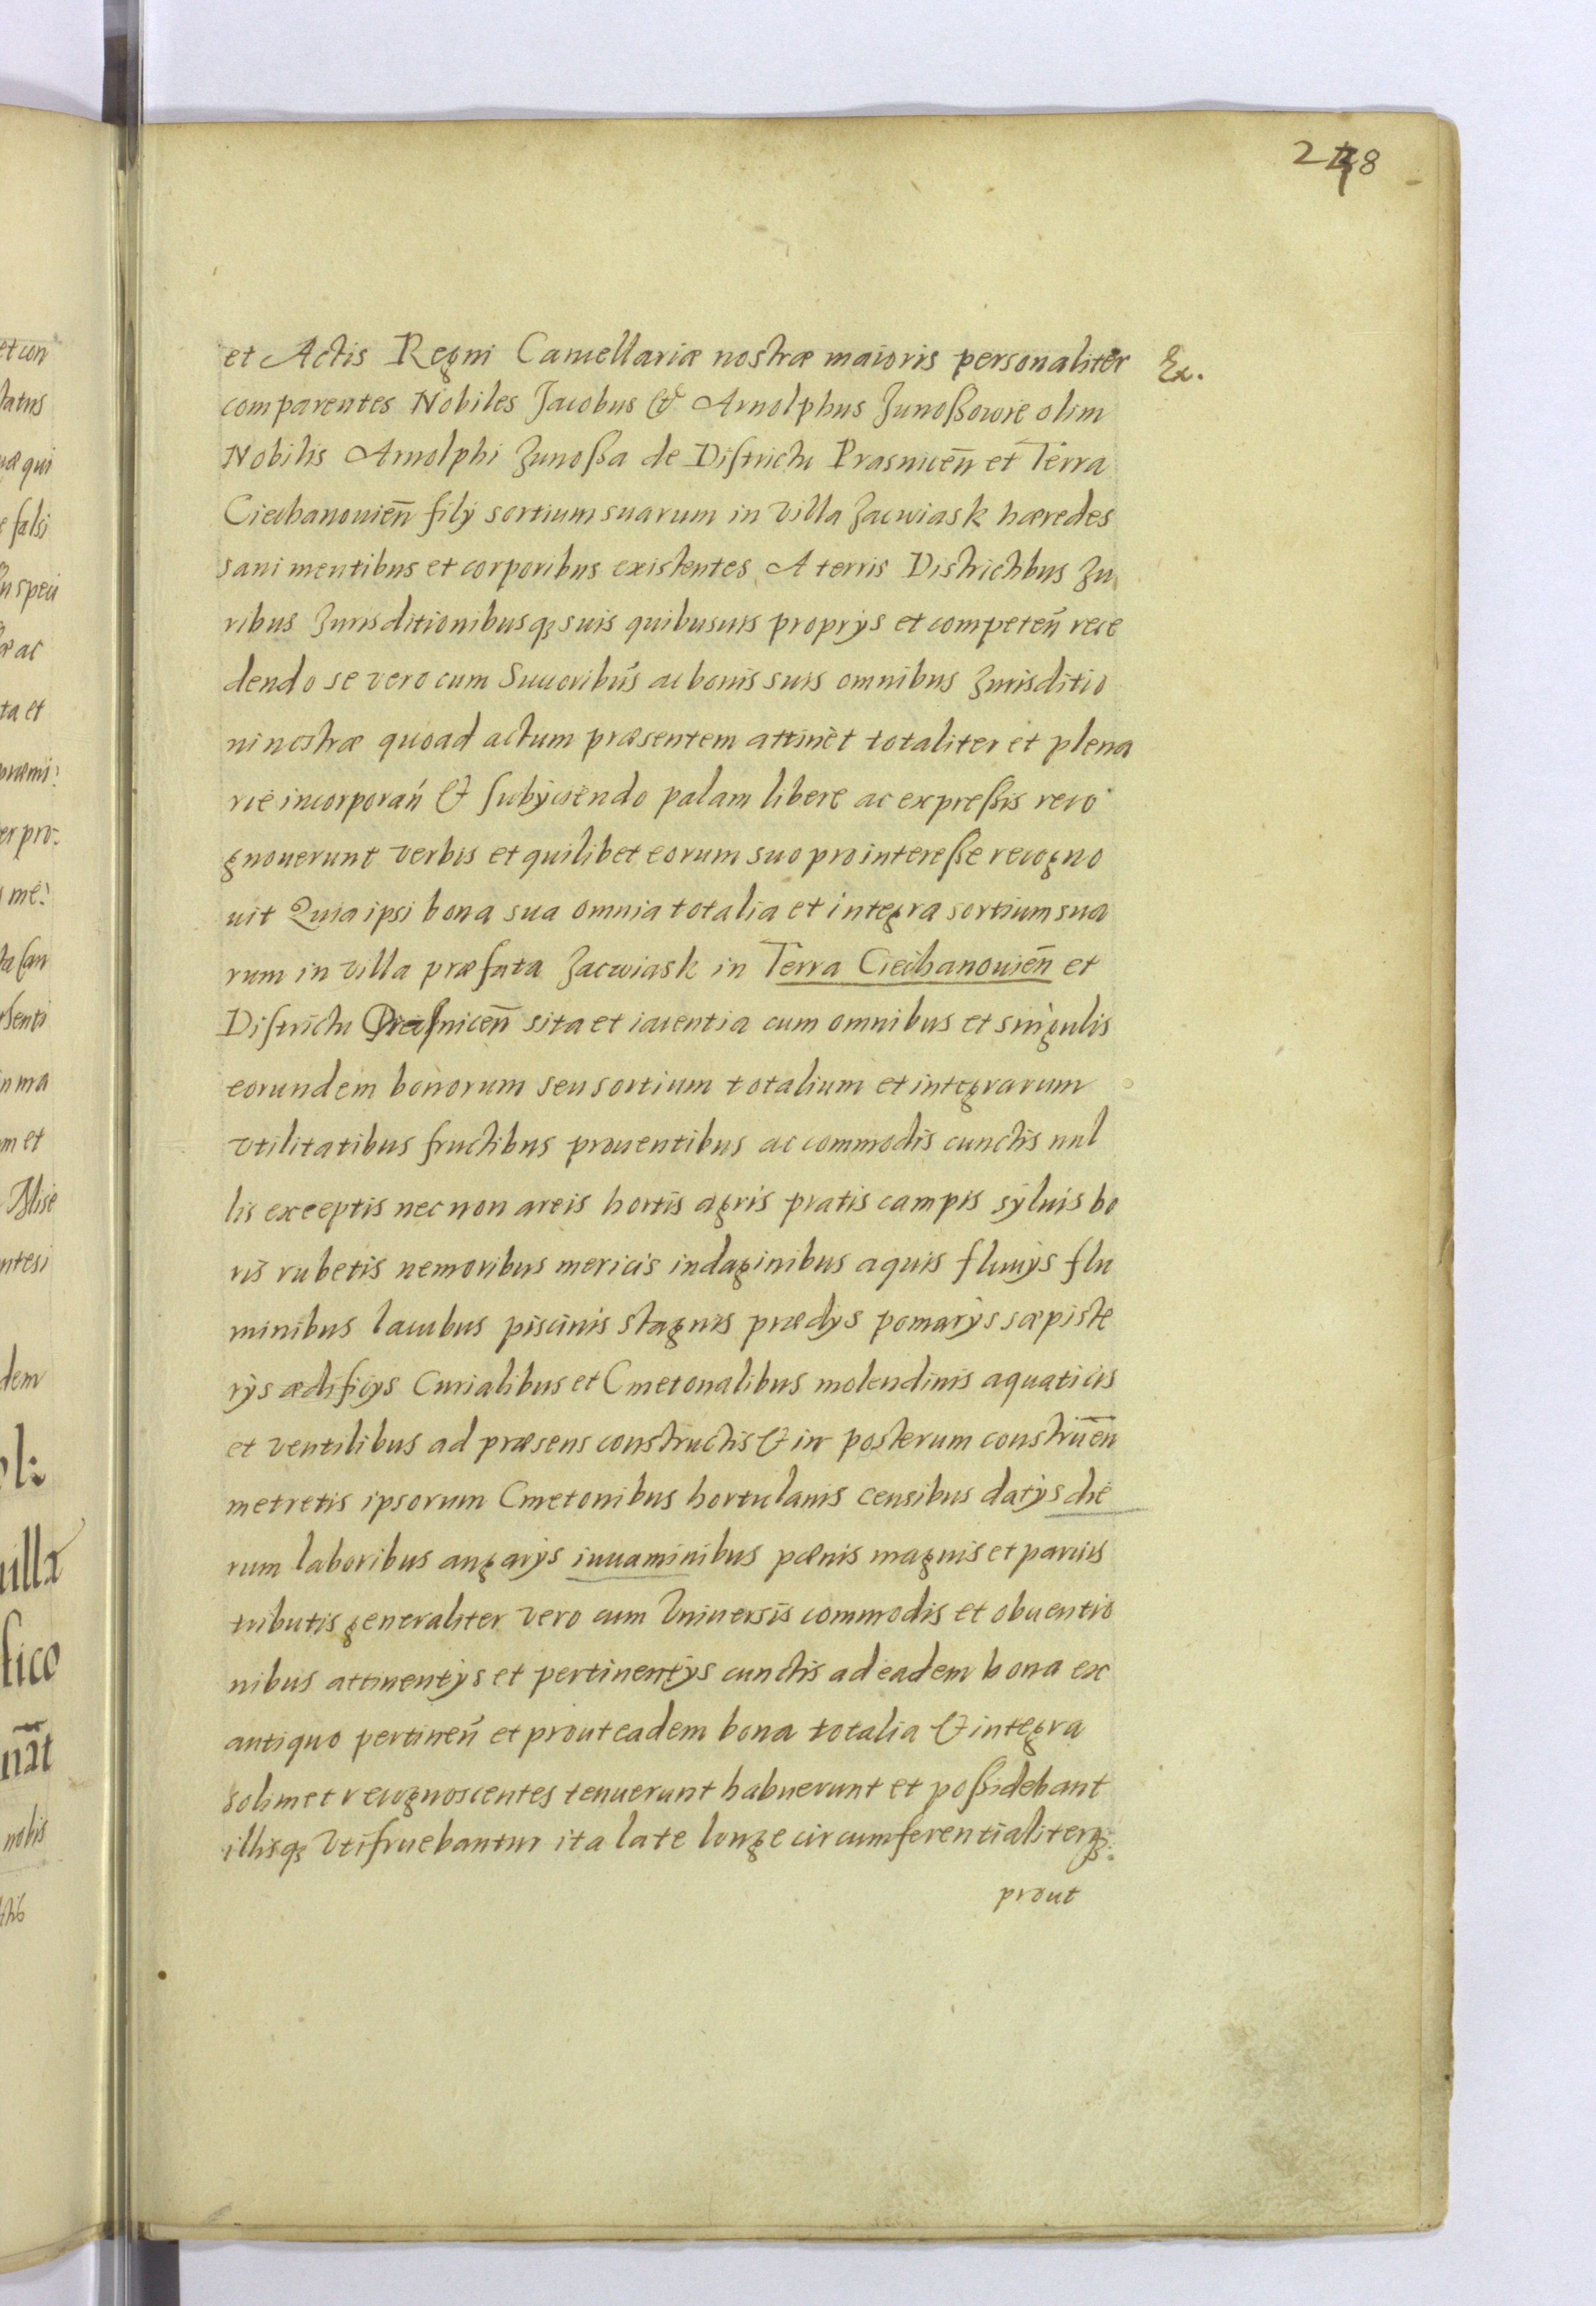 248
et Actis Regni Cancellariæ nostræ maioris personaliter
Ex.
comparentes Nobiles Jacobus & Arnolphus Junoßowie olim
Nobilis Arnolphi Junoßa de Districtu Prasnicen̄ et Terra
Ciechanouien̄ filij sortium suarum in villa Zacwiask hæredes
sani mentibus et corporibus existentes A terris Districtibus Ju
ribus Jurisditionibusq3 suis quibusuis proprijs et competen̄ rece
dendo se vero cum Succoribus ac bonis suis omnibus Jurisditio
ni nostræ quoad actum præsentem attinet totaliter et plena
rie incorporan̄ & subijciendo palam libere ac expreßis reco
gnouerunt verbis et quilibet eorum suo pro intereße recogno
uit Quia ipsi bona sua omnia totalia et integra sortium sua
rum in villa præfata Zacwiask in Terra Ciechanouien̄ et
Districtu Prasnicen̄ sita et iacentia cum omnibus et singulis
eorundem bonorum seu sortium totalium et integrarum
vtilitatibus fructibus prouentibus ac commodis cunctis nul
lis exceptis nec non areis hortis agris pratis campis syluis bo
ris rubetis nemoribus mericis indaginibus aquis fluuijs flu
minibus lacubus piscinis stagnis prædijs pomarijs sæpiste
rijs ædificijs Curialibus et Cmetonalibus molendinis aquaticis
et ventilibus ad præsens constructis & in posterum construen̄
metretis ipsorum Cmetonibus hortulanis censibus datijs die
rum laboribus angarijs iuuaminibus pænis magnis et paruis
tributis generaliter vero cum Vniuersis commodis et obuentio
nibus attinentijs et pertinentijs cunctis ad eadem bona ex
antiquo pertinen̄ et prout eadem bona totalia & integra
solimet recognoscentes tenuerunt habuerunt et poßidebant
illisq3 vtifruebantur ita late longe circumferentialiterq3:
prout